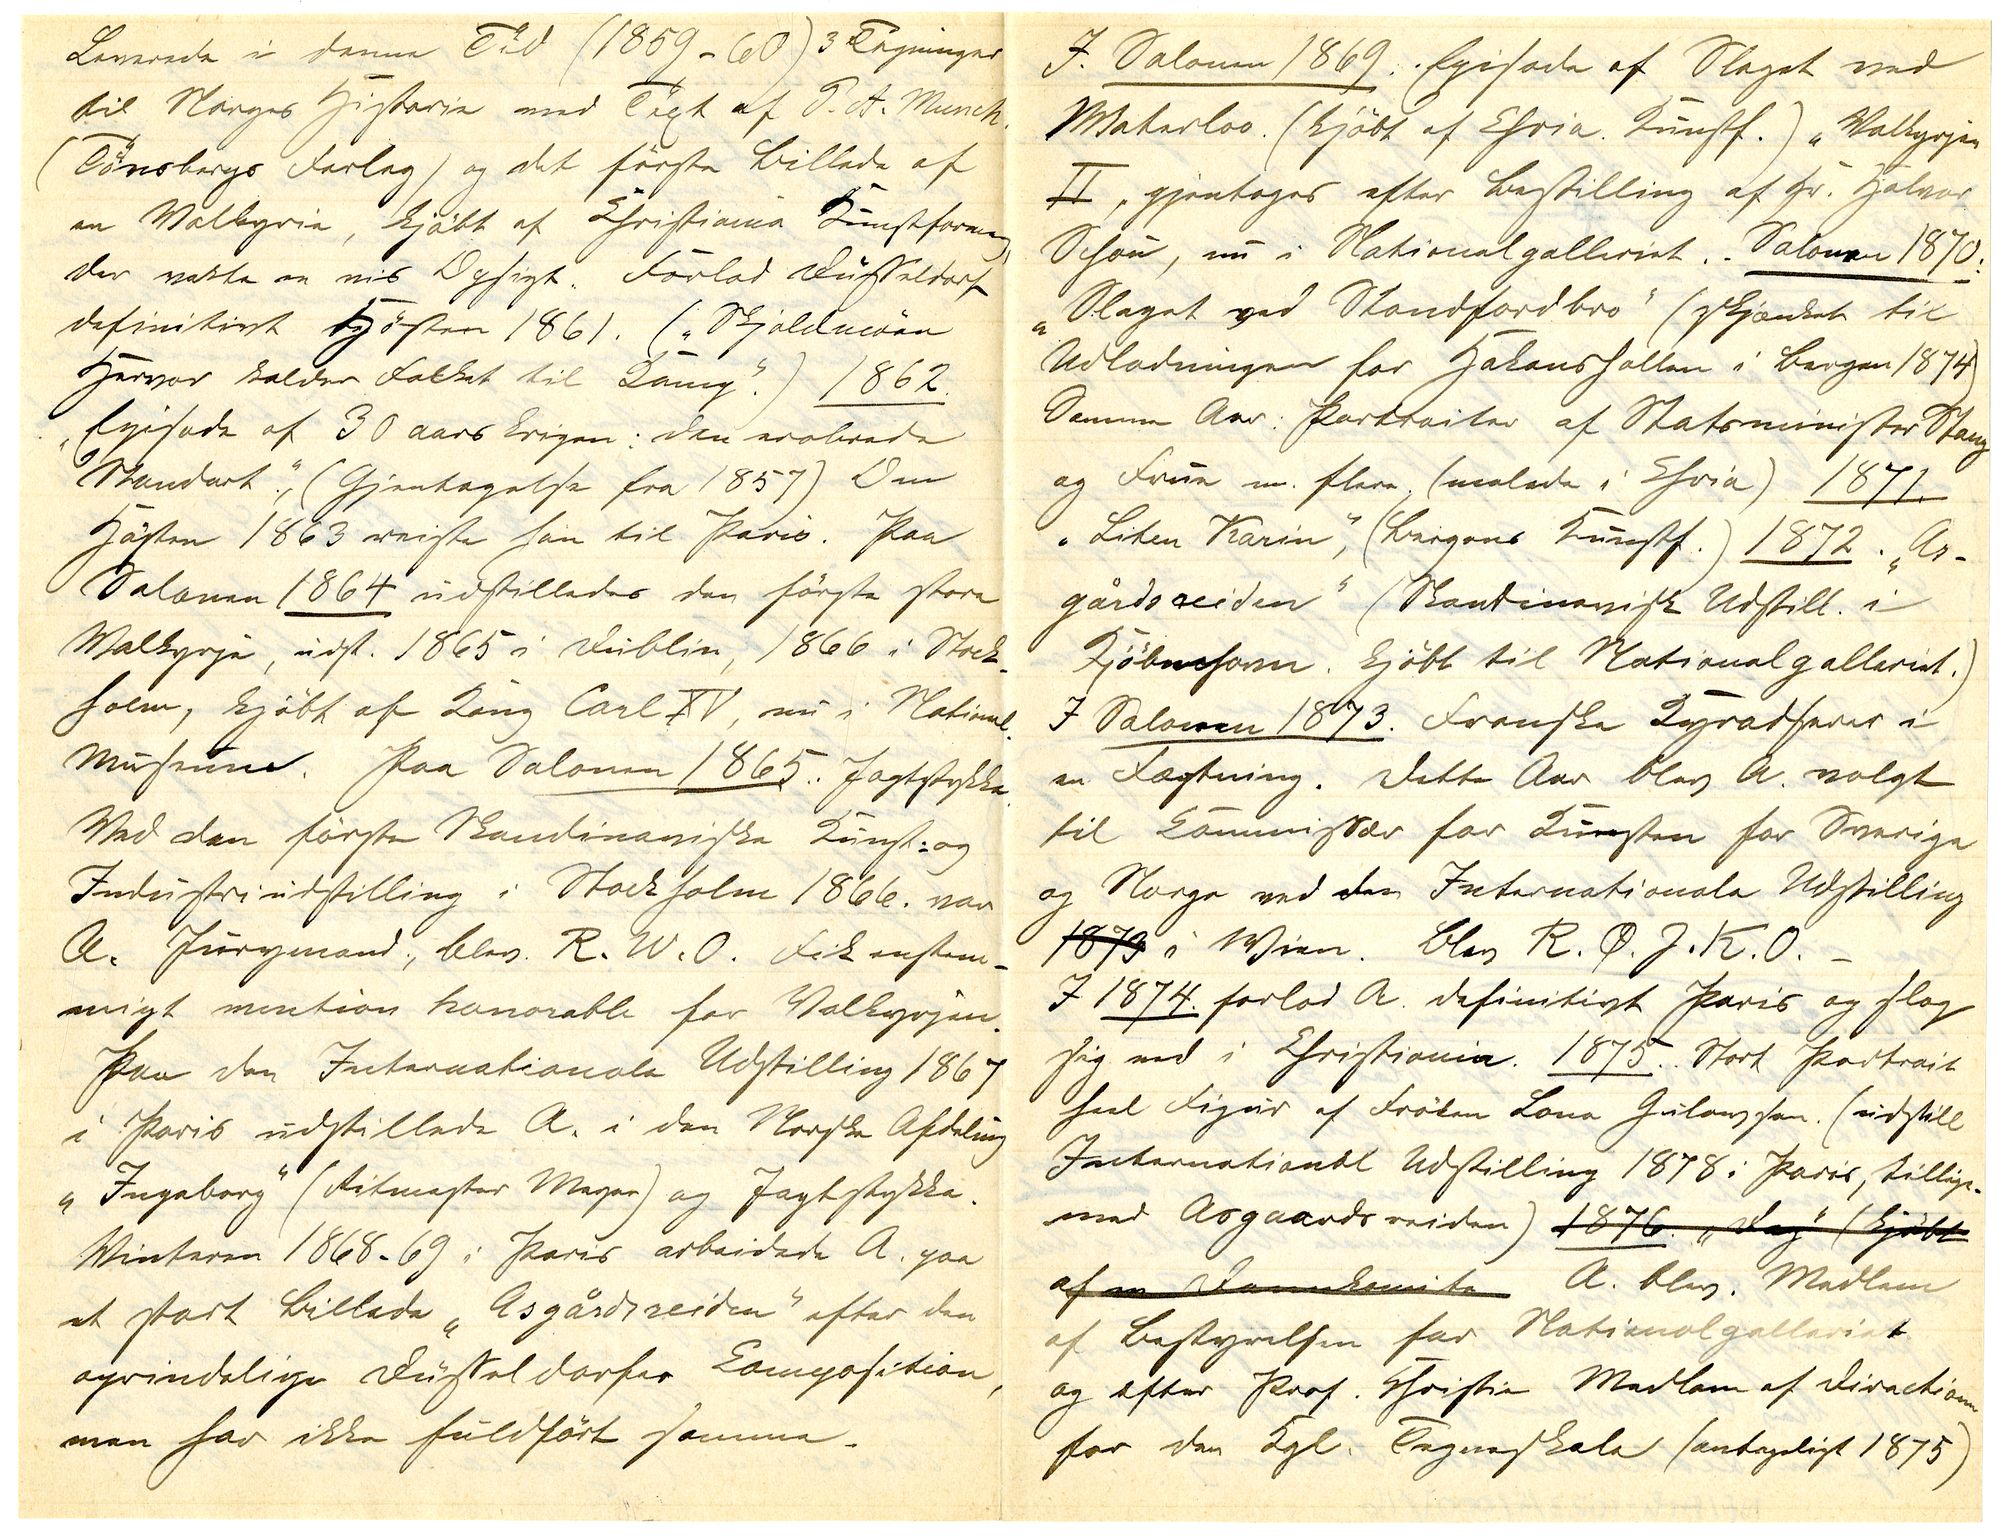 Leverede i denne Tid (1859-60) 3 Tegninger
til Norges Historie med Text af P. A. Munch.
(Tönsbergs Forlag) og det förste Billede af
en Valkyrie, kjöbt af Christiania Kunstforening,
der vakte en vis Opsigt. Forlod Düsseldorf
definitivt Hösten 1861. („Skjoldmöen
Hervor kalder Folket til Kamp“.) 1862.
„Episode af 30 aars krigen: den erobrede
Standart“, (Gjentagelse fra 1857) Om
Hösten 1863 reiste han til Paris. Paa
Salonen 1864 udstilledes den förste store
Walkyrje, udst. 1865 i Dublin, 1866 i Stock-
holm, kjöbt af Kong Carl XV, nu i National-
Museum. Paa Salonen 1865.. Jagtstykke.
Ved den förste Skandinaviske Kunst- og
Industriudstilling i Stockholm 1866. var
A. Jurymand, blev R. W. O. Fik enstem-
migt mention honorable for Valkyrjen.
Paa den Internationale Udstilling 1867
i Paris udstillede A. i den Norske Afdeling
„Ingeborg“ (Ritmester Meyer) og Jagtstykke.
Winteren 1868-69 i Paris arbeidede A. paa
et stort Billede „Asgårdsreiden“ efter den
oprindelige Düsseldorfer Composition,
men har ikke fuldfört samme.
I. Salonen 1869. Episode af Slaget ved
Waterloo. (kjöbt af Chria. Kunstf.) „Walkyrjen
II“, gjentages efter Bestilling af Hr. Halvor
Schou, nu i Nationalgalleriet. - Salonen 1870:
„Slaget ved Standfordbro“ (skjænket til
Udlodningen for Hakonshallen i Bergen 1874)
Samme Aar: Portraiter af Statsminister Stang
og Frue m. flere. (malede i Chria) 1871.
„Liten Karin“, (Bergens Kunstf.) 1872. „As-
gårdsreiden“ (Skandinavisk Udstill. i
Kjöbenhavn. kjöbt til Nationalgalleriet.)
I Salonen 1873. Franske Kyradserer i
en Fægtning. Dette Aar blev A. valgt
til Commissær for Kunsten for Sverige
og Norge ved den Internationale Udstilling
1873 i Wien. blev R. Ö. F. J. O. -
I 1874. forlod A. definitivt Paris og slog
sig ned i Christiania. 1875.. Stort Portrait
heel Figur af Fröken Lona Gulowsen. (udstill
International Udstilling 1878 i Paris, tillige-
med Asgaardsreiden) 1876. „Dag“ (kjöbt
af en Damekomite A. blev. Medlem
af Bestyrelsen for Nationalgalleriet
og efter Prof. Christie Medlem af Directionen
for den Kgl. Tegneskole (antageligt 1875)